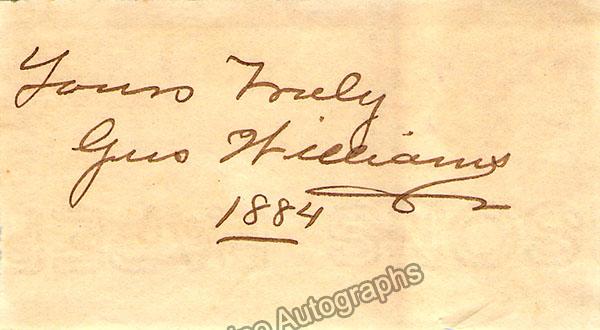 Yours Truly
Gus Williams
1884
Autographs